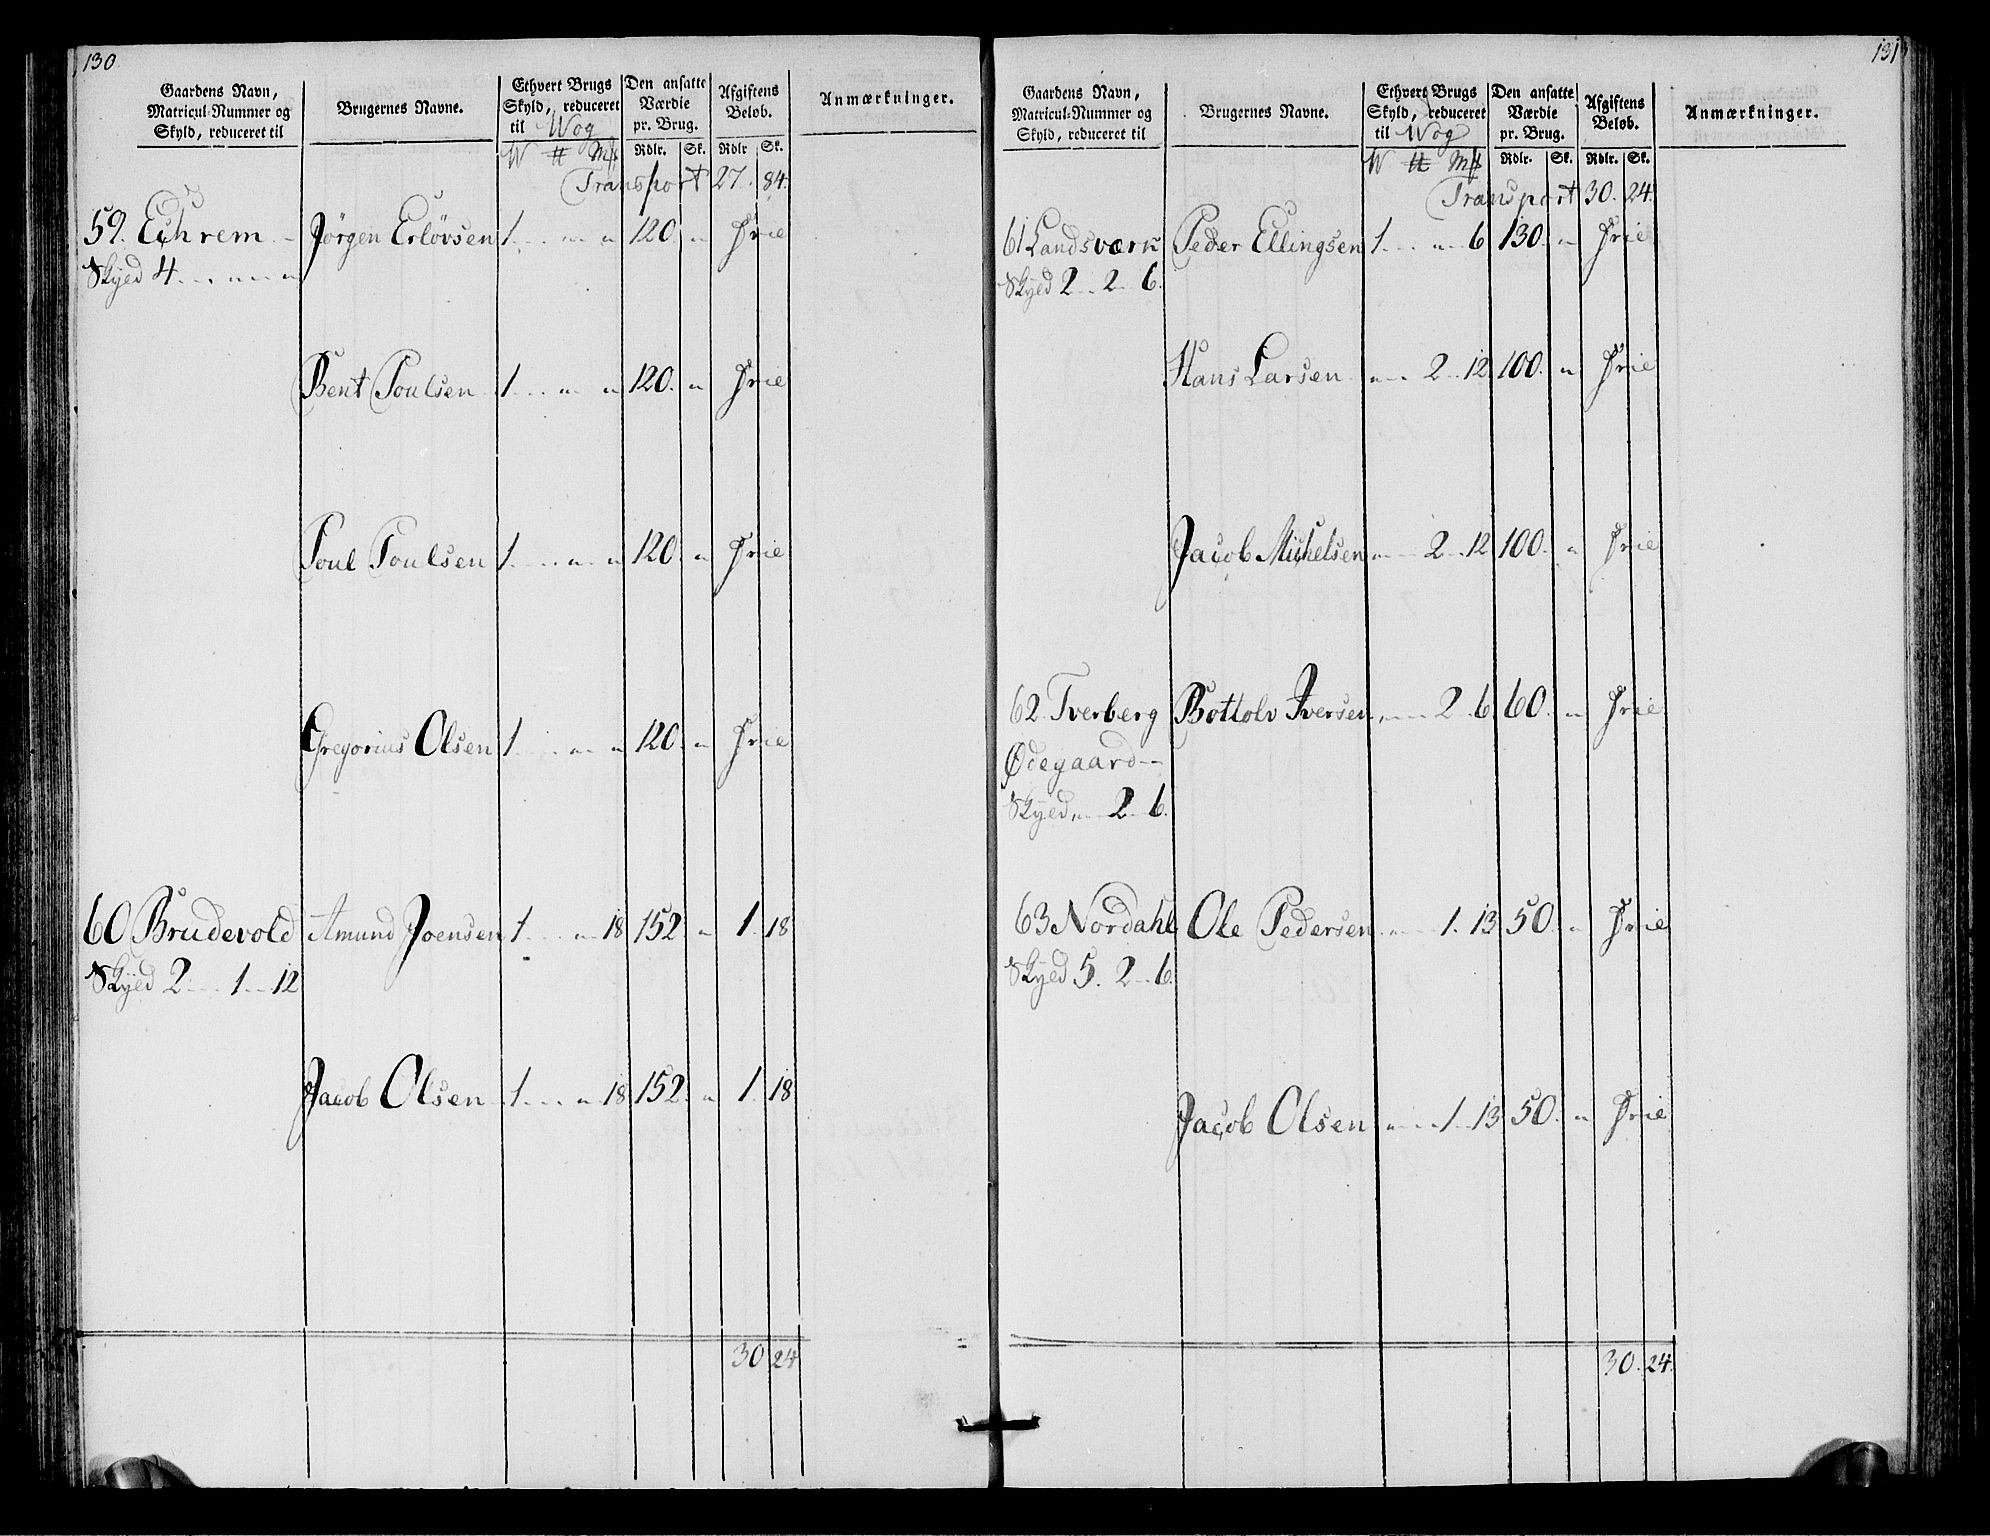 130
Gaardens Navn, Matricul-Nummer og Skyld, reduceret til
Brugernes Navne.
Ethvert Brugs Skyld, reduceret til Wog
Den ansatte Værdie pr. Brug.
Afgiftens Beløb.
Anmærkninger.
W ℔ Mk Rdlr. Sk. Rdlr Sk.
Transport 27. 84.
59. Echrem - Jørgen Erløvsen 1 . . . „ - „ 120. „ Frie
Skyed 4 . . „ - „ - „
Bent Poulsen 1 . . . „ - „ 120. „ Frie
Poul Poulsen 1 . . . „ - „ 120. „ Frie
Gregorius Olsen 1 . . . „ - „ 120. „ Frie
60 Brudevold Amund Joensen 1 . . . „ - 18 152 „ 1. 18
Skyed 2 - - - 1 - - 12
Jacob Olsen 1 . . . „ - 18 152. „ 1. 18
30 24
131
Gaardens Navn, Matricul-Nummer og Skyld, reduceret til
Brugernes Navne.
Ethvert Brugs Skyld, reduceret til Wog
Den ansatte Værdie pr. Brug.
Afgiftens Beløb.
Anmærkninger.
W ℔ Mk Rdlr. Sk. Rdlr. Sk.
Transport 30. 24.
61 Landsværk Peder Ellingsen 1 . . . „ - 6 130. „ Frie
Skyed 2 - - 2 - 6.
Hans Larsen „ - - 2 - 12 100. „ Frie
Jacob Michelsen „ - - 2 - 12 100. „ Frie
62. Tverberg Bottolv Iversen „ - - 2 - 6 60. „ Frie
Ødegaard --
Skyed „ - 2 - 6.
63 Nordahl Ole Pedersen „ - - 1. 13 50. „ Frie
Skyed 5. 2 - 6.
Jacob Olsen „ - - 1 - 13 50. „ Frie
30. 24.